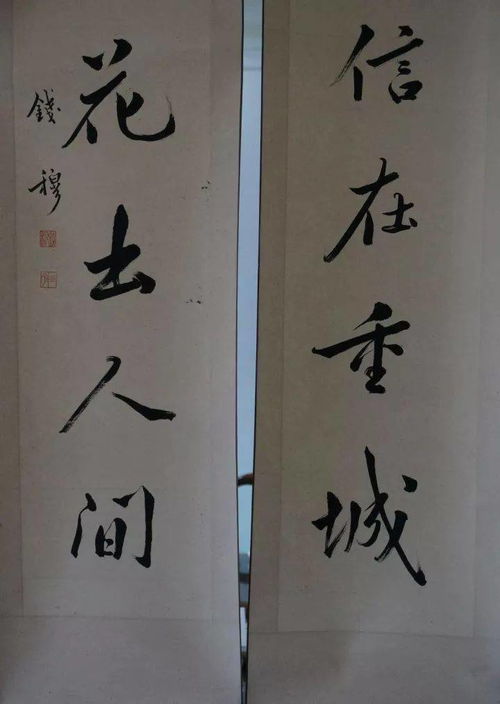 信在重城
花出人間
錢穆